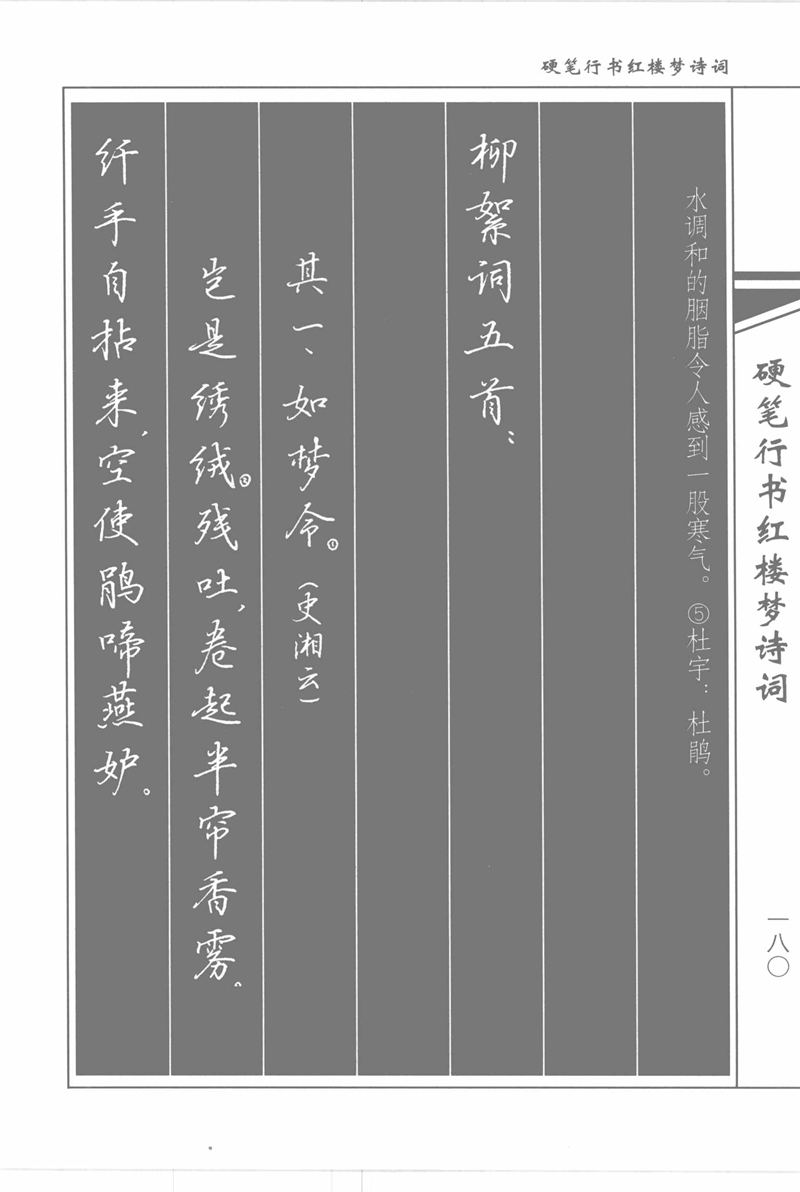 硬笔行书红楼梦诗词
水调和的胭脂令人感到一股寒气。⑤杜宇：杜鹃。
柳絮词五首：
其一、如梦令①（史湘云）
岂是绣绒②残吐，卷起半帘香雾。
纤手自拈来，空使鹃啼燕妒。
硬笔行书红楼梦诗词
一八〇